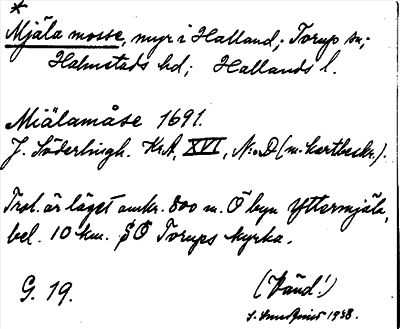 *
Mjäla mosse, myr i Halland; Torup sn;
Halmstads hd; Hallands l.
Miälamåse 1691.
J. Söderlingh. KrA, XVI, N:o D (m. kartbeskr.).
Trol. är läget omkr. 800 m. Ö byn Yttermjäla,
bel. 10 km. SÖ Torups kyrka.
G. 19.
(Vänd!)
1938.